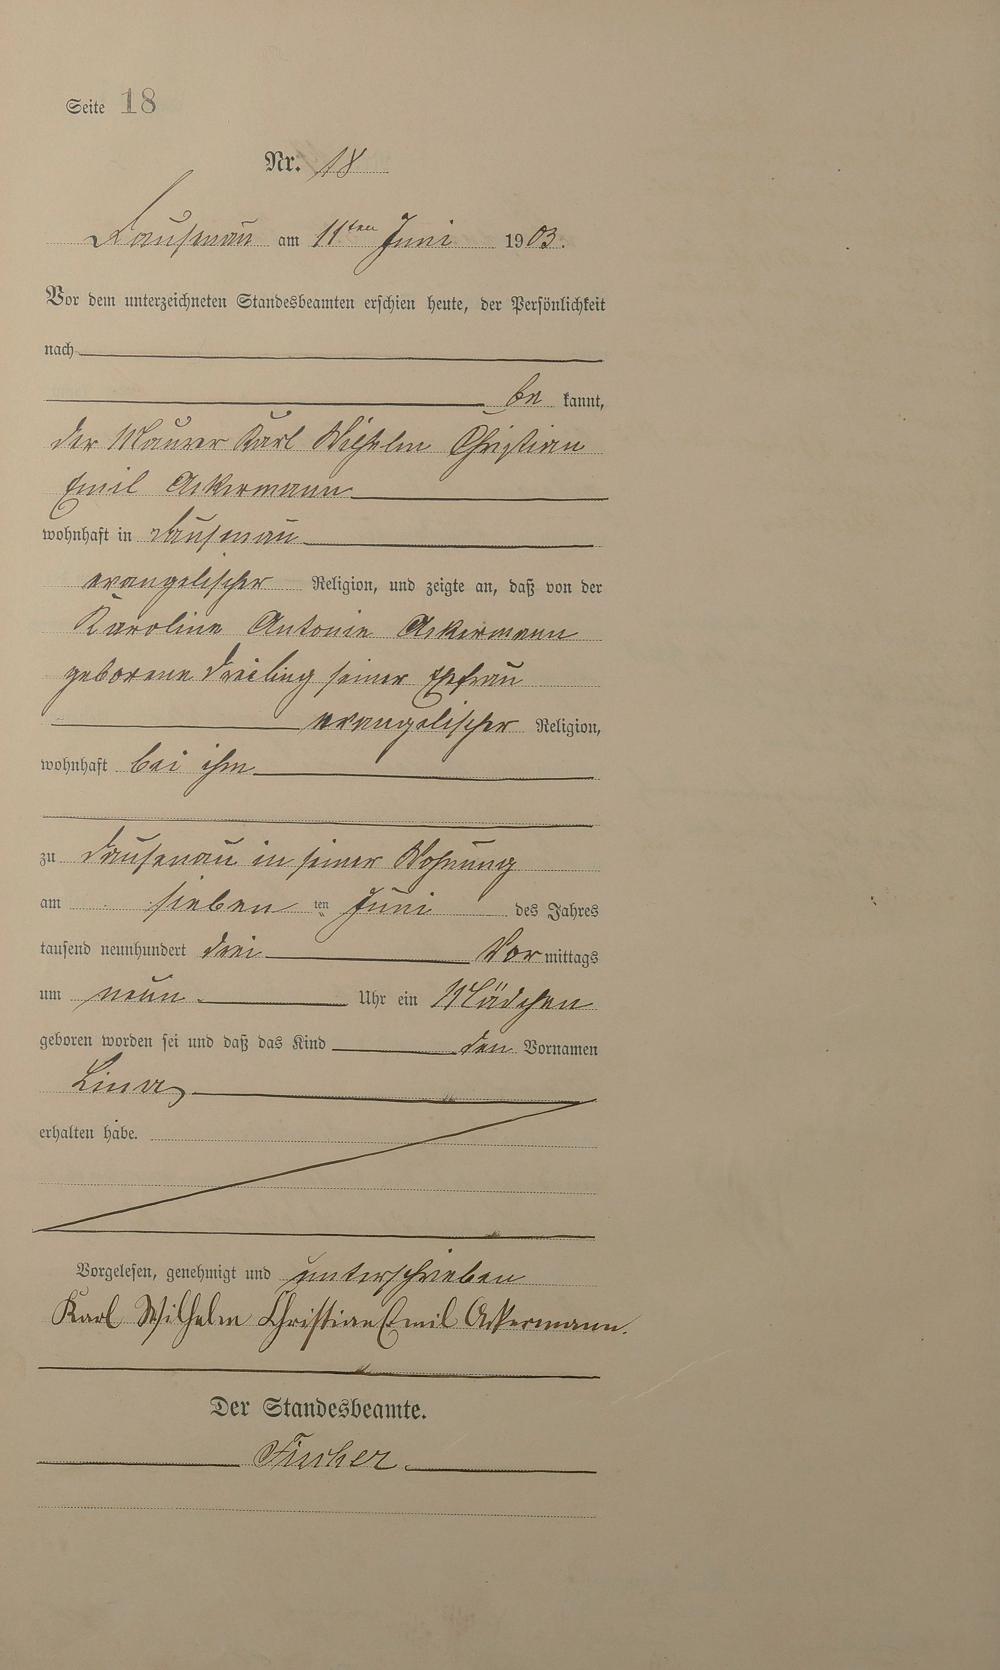 Seite 18
Nr. 18
Dausenau am 11ten Juni 1903.
Vor dem unterzeichneten Standesbeamten erschien heute, der Persönlichkeit
nach
be kannt,
der Maurer Karl Wilhelm Christian
Emil Ackermann
wohnhaft in Dausenau
evangelischer Religion, und zeigte an, daß von der
Karoline Antonie Ackermann
geborene Dreiling seiner Ehefrau
evangelischer Religion,
wohnhaft bei ihm
zu Dausenau in seiner Wohnung
am sieben ten Juni des Jahres
tausend neunhundert drei Vor mittags
um neun Uhr ein Mädchen
geboren worden sei und daß das Kind den Vornamen
Lina
erhalten habe.
Vorgelesen, genehmigt und unterschrieben
Karl Wilhelm Christian Emil Ackermann.
Der Standesbeamte.
Fischer.